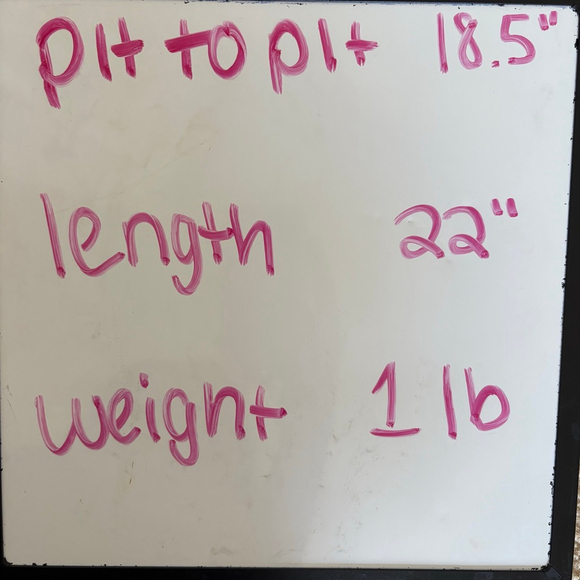 pit to pit 18.5"
length 22"
weight 1 lb